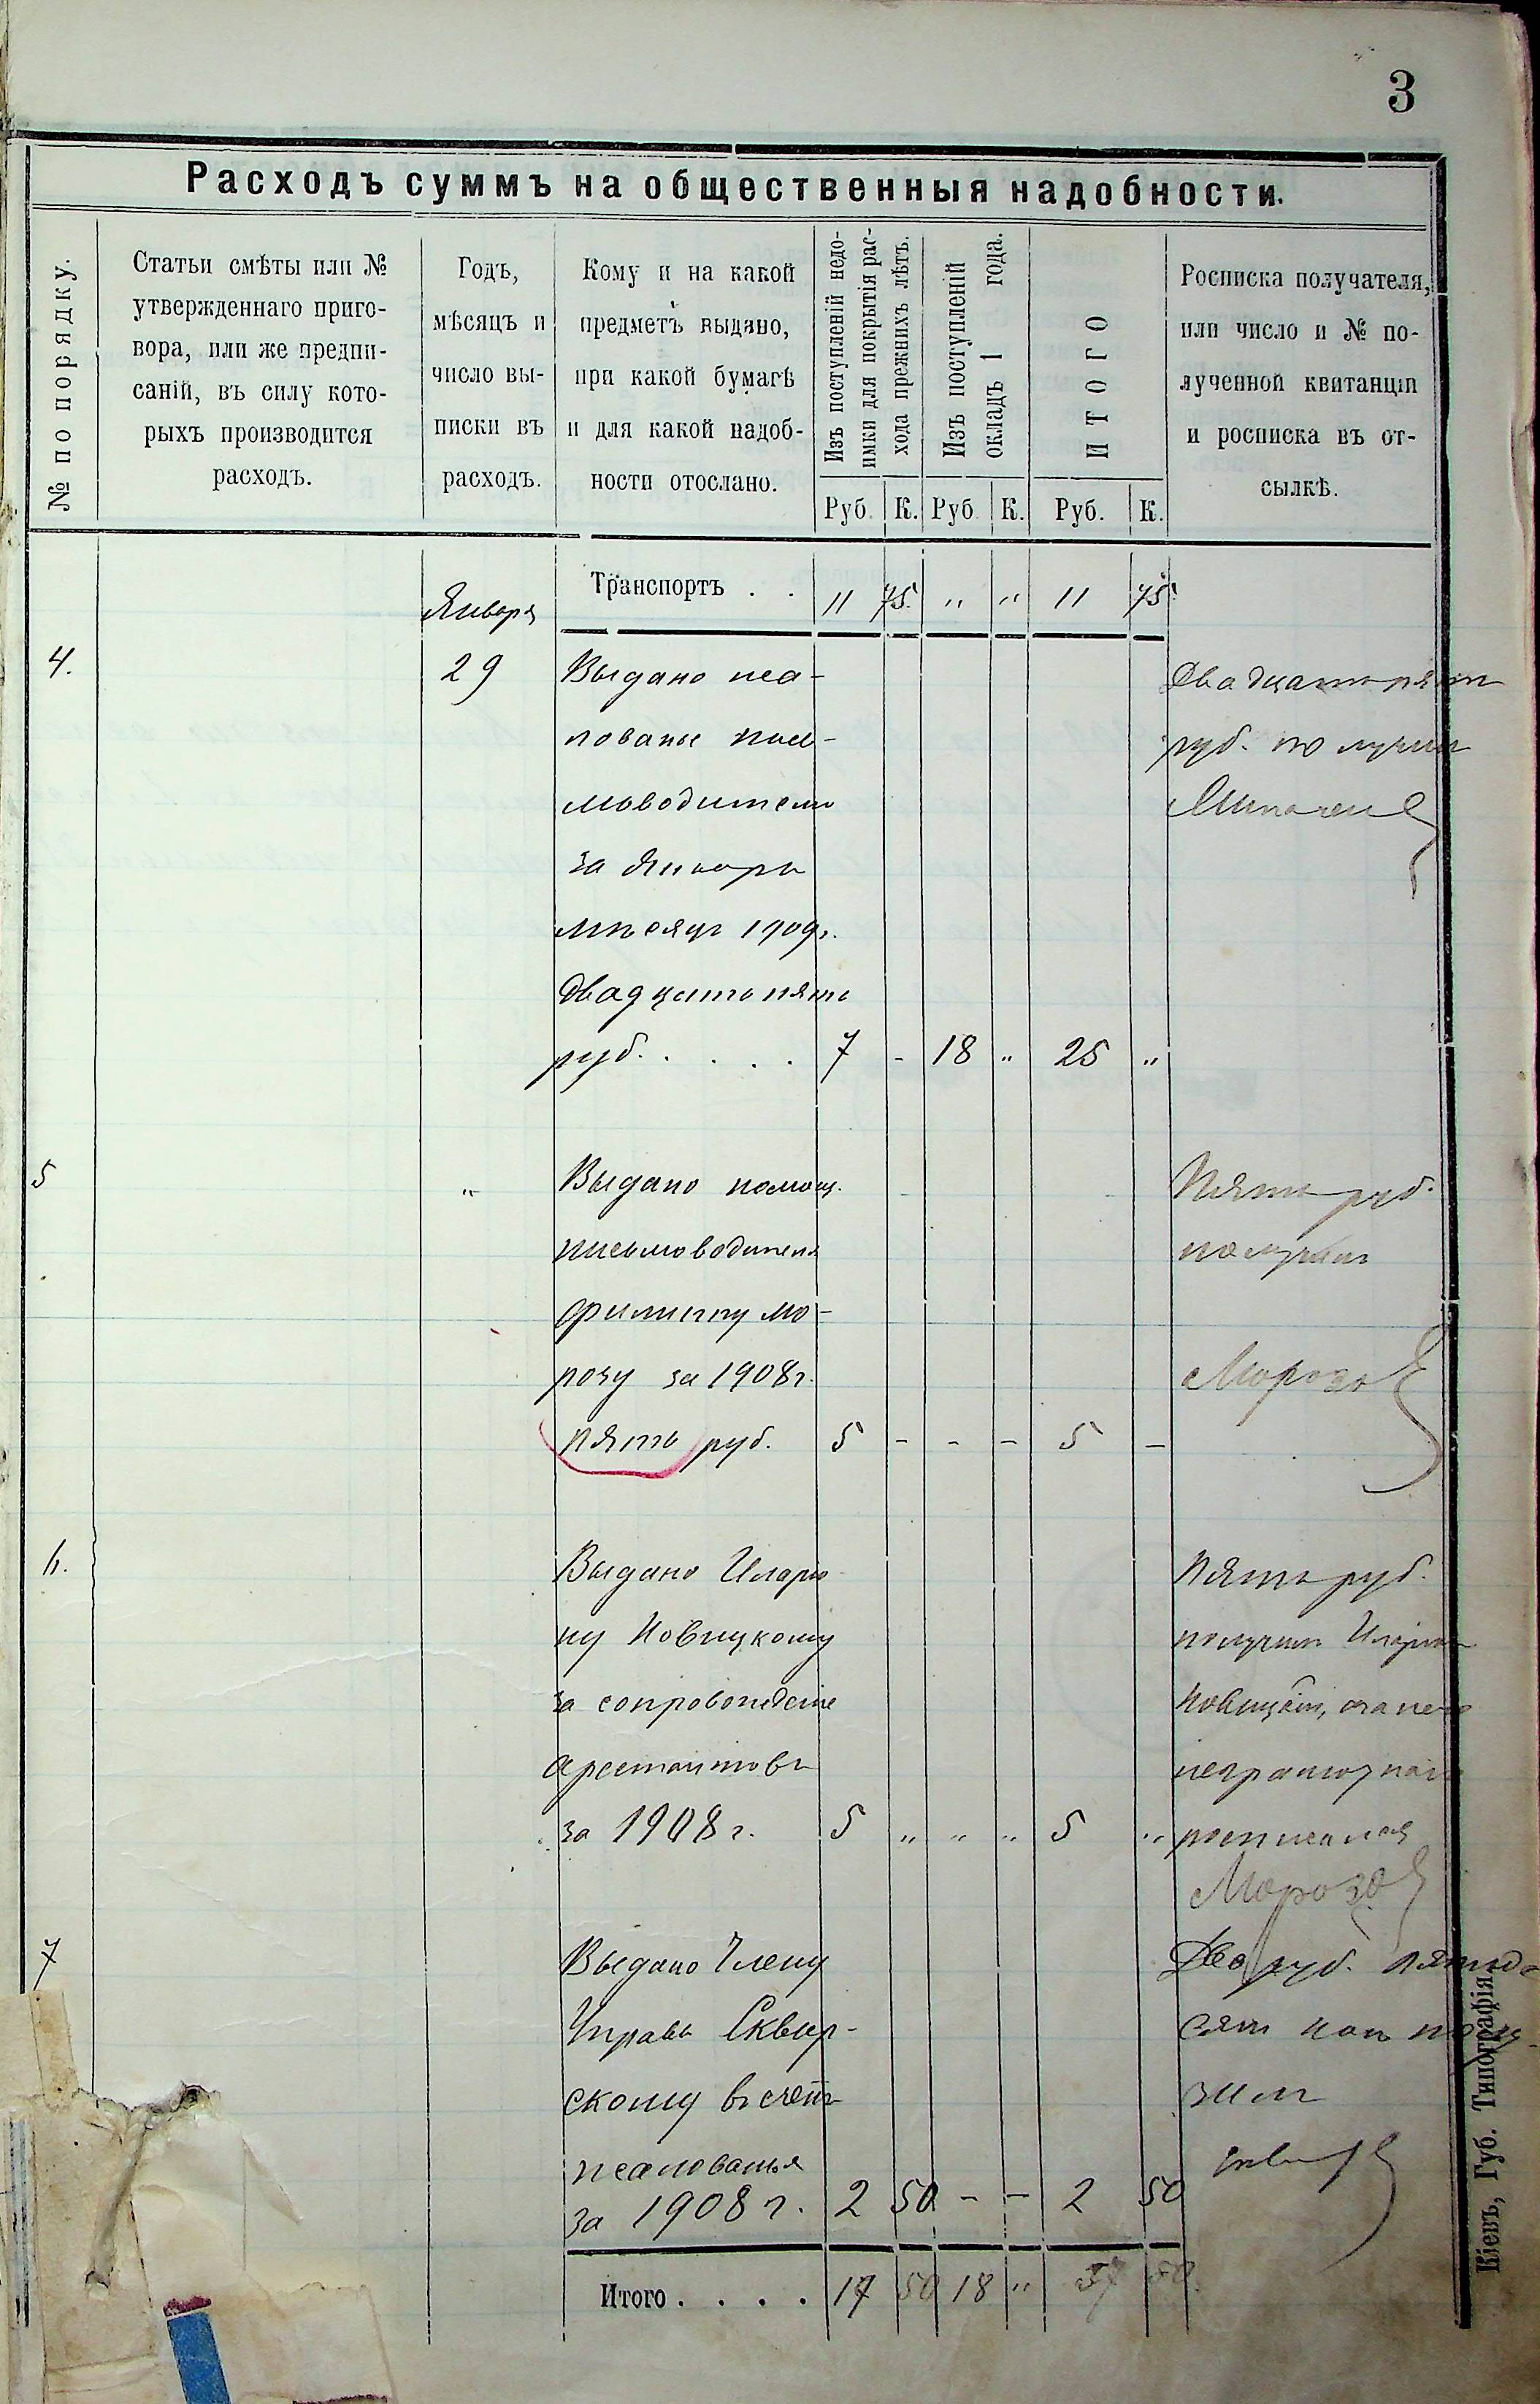 3
Расходъ суммъ на общественныя надобности.
№ по порядку.
Статьи смѣты или №
утвержденнаго приго-
вора, или же предпи-
саній, въ силу кото-
рыхъ производится
расходъ.
Годъ,
мѣсяцъ и
число вы-
писки въ
расходъ.
Кому и на какой
предметъ выдано,
при какой бумагѣ
и для какой надоб-
ности отослано.
Изъ поступленій недо-
имки для покрытія рас-
хода прежнихъ лѣтъ.
Изъ поступленій
окладъ 1 года.
ИТОГО
Росписка получателя,
или число и № по-
лученной квитанціи
и росписка въ от-
сылкѣ.
Руб. К. Руб К. Руб. К.
Января
Транспортъ . . 11 75. " " 11 75.
4. 29 Выдано жа-
лованье пись-
моводителю
за Январь
мѣсяцъ 1909 г.
двадцать пять
руб. . . . . 7 - 18 " 25 "
Двадцать пять
руб. получилъ
5 " Выдано помощ.
письмоводителя
Филиппу Мо-
розу за 1908 г.
пять руб. 5 - - - 5 -
Пять руб.
получилъ
Морозов
6. Выдано Иларіо-
ну Новицкому
за сопровожденіе
арестантовъ
за 1908 г. 5 " " " 5 "
Пять руб.
получилъ Иларіон
Новицкій, а за него
неграмотнаго
росписался
Морозов
7 Выдано Члену
Управы Сквир-
скому въ счетъ
жалованья
за 1908 г. 2 50 - - 2 50
Два руб. пятьде-
сятъ коп полу-
чилъ
Итого . . . . 17 50 18 " 37 50.
Кіевъ, Губ. Типографія.